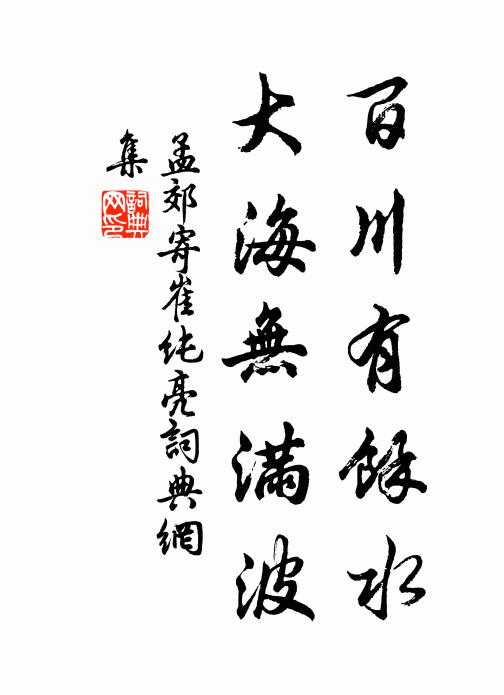 百川有餘水
大海無滿波
孟郊寄崔纯亮詞典網
集
詞典
网印